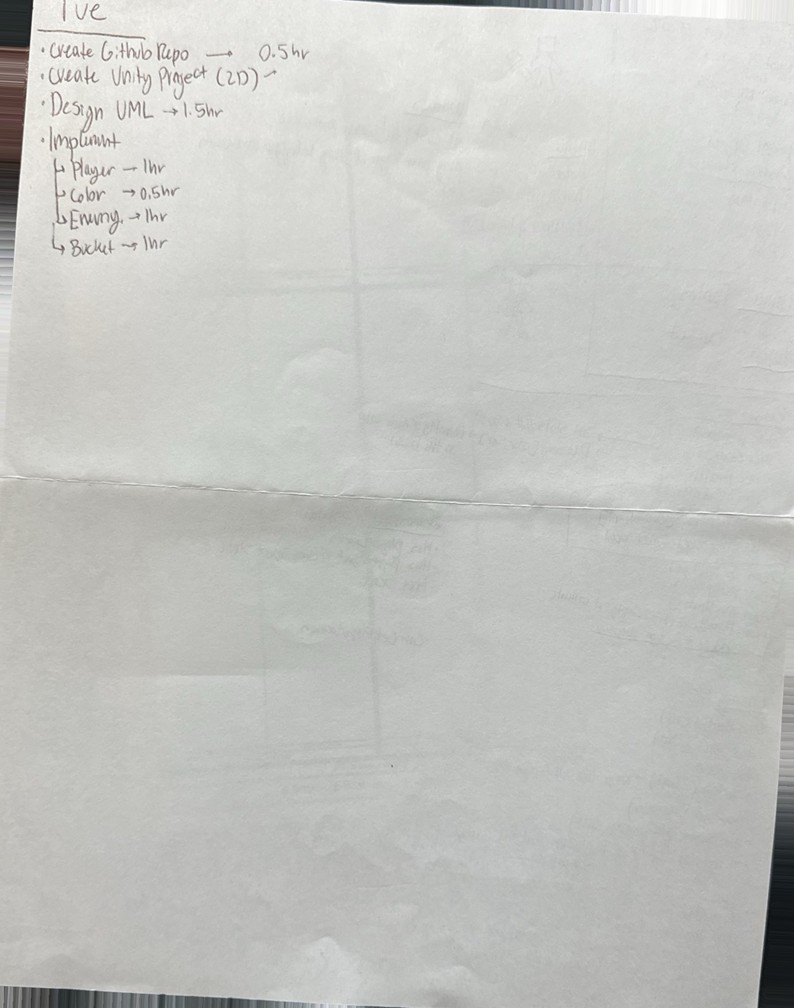 Tue
• Create Github Repo → 0.5hr
• Create Unity Project (2D) →
• Design UML → 1.5hr
• Implement
↳ Player → 1hr
↳ Color → 0.5hr
↳ Enemy. → 1hr
↳ Bucket → 1hr